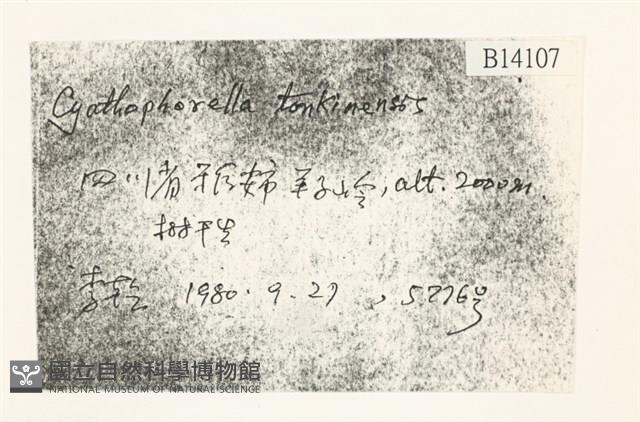 B14107
Cyathophorella tonkinensis
四川省 , alt. 2000m.
树干生
李乾 1980. 9. 27 , 5776号
國立自然科學博物館
NATIONAL MUSEUM OF NATURAL SCIENCE